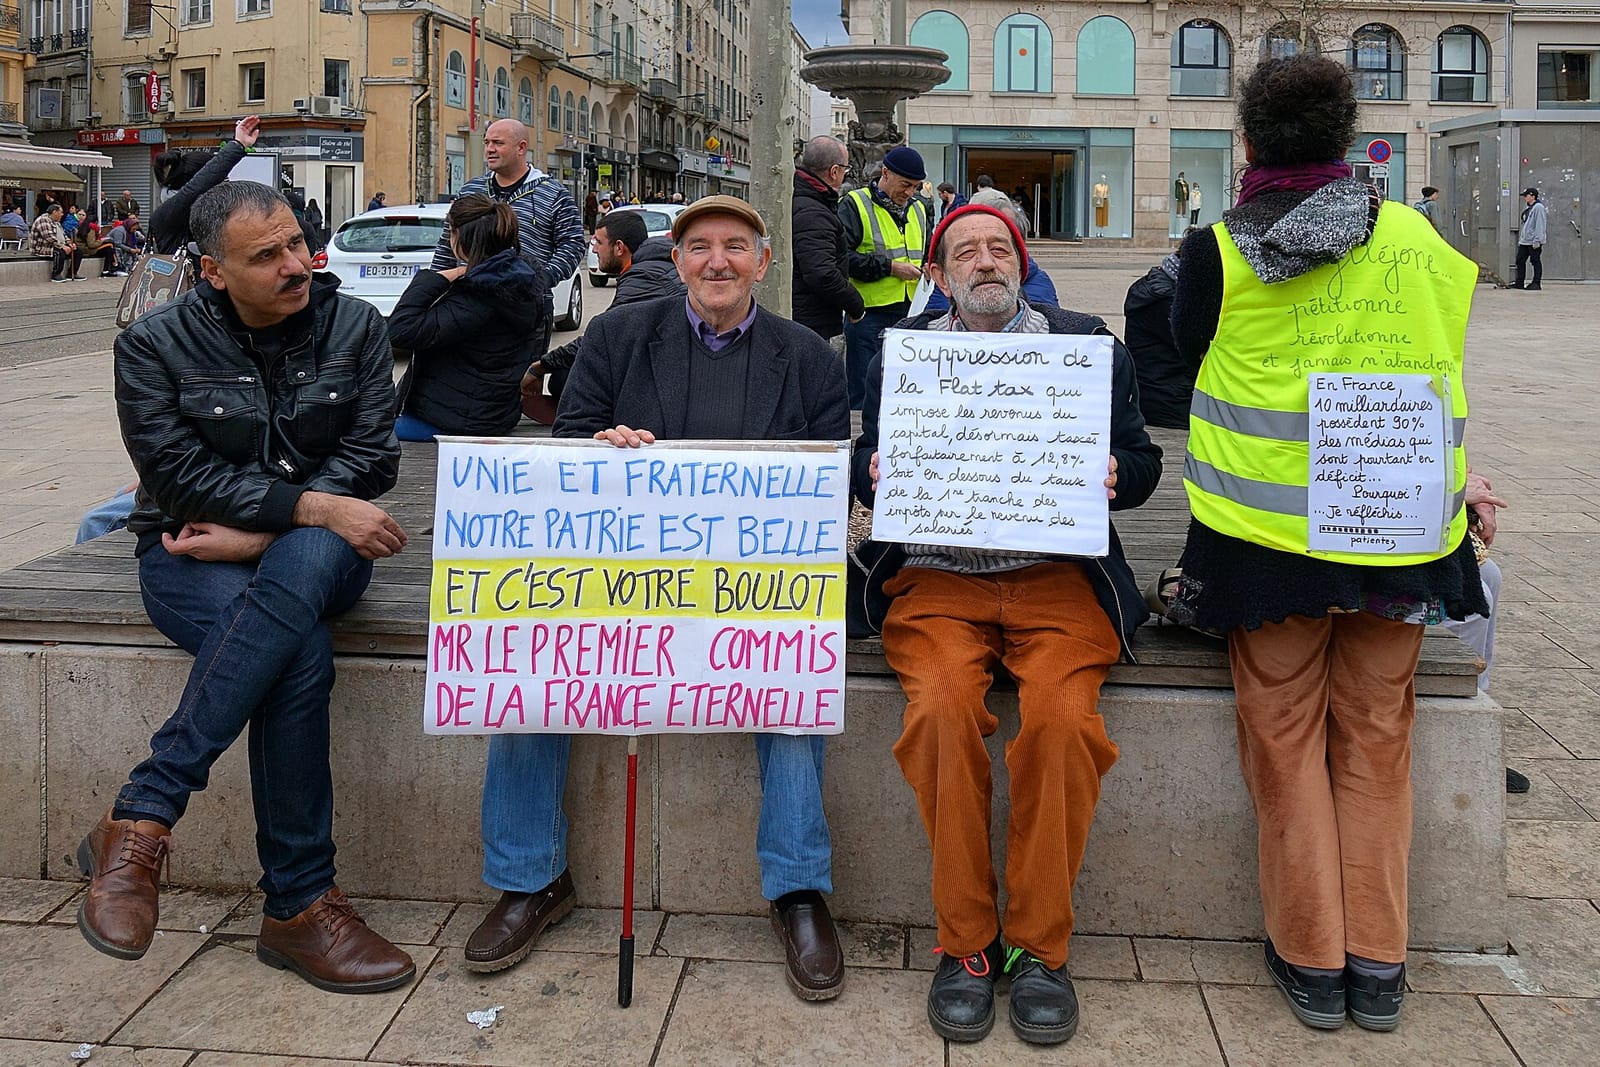 TABAC
BAR - TABAC
Salon de thé
Bar - Glacier
EQ-313-ZT
ZARA
UNIE ET FRATERNELLE
NOTRE PATRIE EST BELLE
ET C'EST VOTRE BOULOT
MR LE PREMIER COMMIS
DE LA FRANCE ETERNELLE
Suppression de
la Flat tax qui
impose les revenus du
capital, désormais taxés
forfaitairement à 12,8%
soit en dessous du taux
de la 1ère tranche des
impôts sur le revenu des
salariés.
pétitionne
révolutionne
et jamais m'abandonne
En France,
10 milliardaires
possèdent 90%
des médias qui
sont pourtant en
déficit...
Pourquoi ?
...Je réfléchis...
patientez